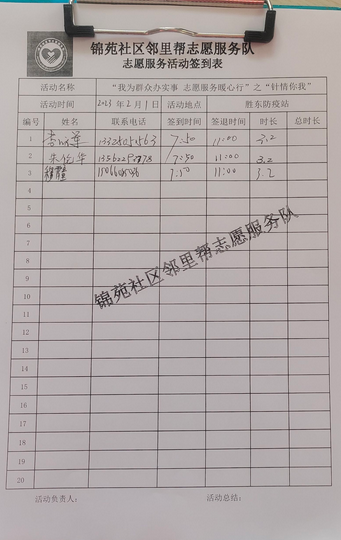 锦苑社区邻里帮志愿服务队
志愿服务活动签到表
活动名称 “我为群众办实事 志愿服务暖心行”之“针情你我”
活动时间 2023年2月1日 活动地点 胜东防疫站
编号 姓名 联系电话 签到时间 签退时间 时长 总时长
1 7:50 11:00 3.2
2 7:50 11:00 3.2
3 7:50 11:00 3.2
4
5
6
7
8
9
10
11
12
13
14
15
16
17
18
19
20
锦苑社区邻里帮志愿服务队
活动负责人： 活动总结：